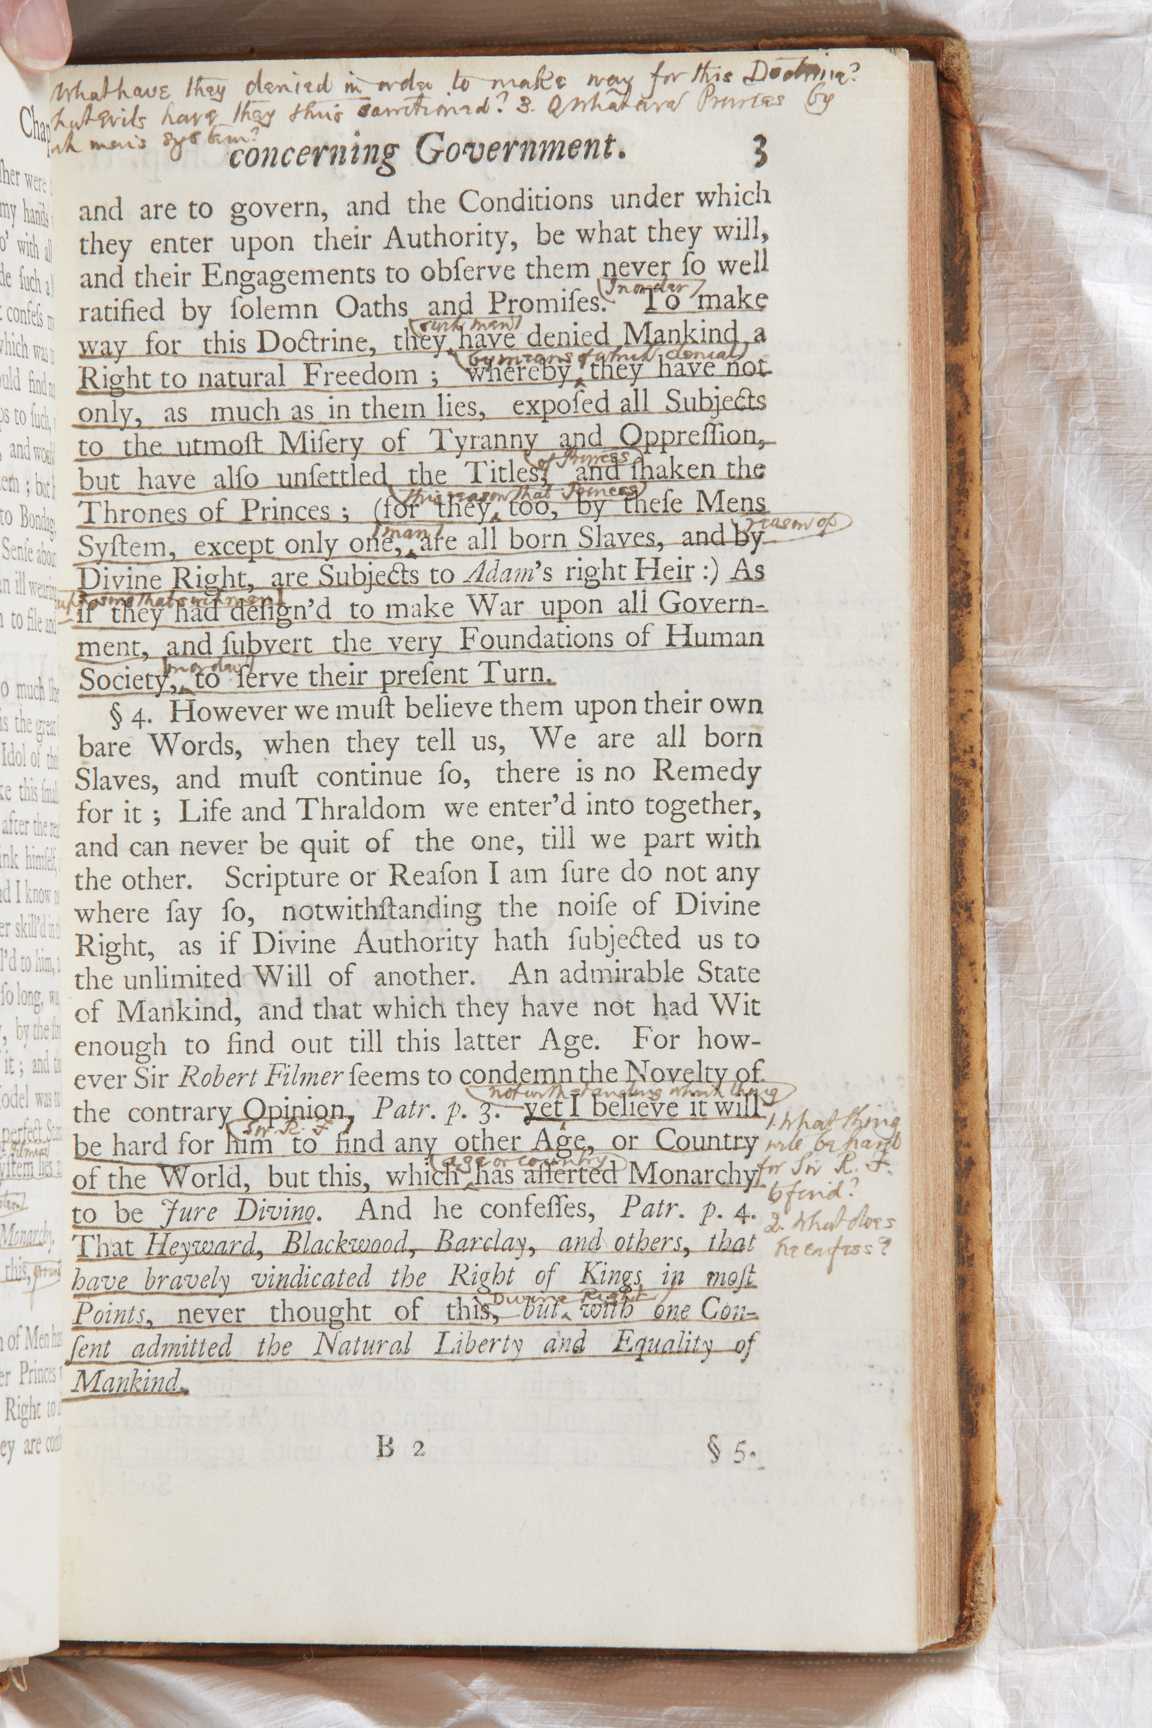 What have they denied in order to make way for this Doctrine?
Evils have they thus sanctioned? 3. What are Princes by
men's system?
concerning Government. 3
and are to govern, and the Conditions under which
they enter upon their Authority, be what they will,
and their Engagements to obſerve them never ſo well
In order
ratified by ſolemn Oaths and Promiſes. To make
such men
way for this Doctrine, they have denied Mankind a
by means of which denial
Right to natural Freedom ; whereby they have not
only, as much as in them lies, expoſed all Subjects
to the utmoſt Miſery of Tyranny and Oppreſſion,
of Princes
but have alſo unſettled the Titles, and ſhaken the
this reason that Princes
Thrones of Princes ; (for they too, by theſe Mens
man reason of
Syſtem, except only one, are all born Slaves, and by
Divine Right, are Subjects to Adam's right Heir :) As
that such men
if they had deſign'd to make War upon all Govern-
ment, and ſubvert the very Foundations of Human
in order
Society, to ſerve their preſent Turn.
§ 4. However we muſt believe them upon their own
bare Words, when they tell us, We are all born
Slaves, and muſt continue ſo, there is no Remedy
for it ; Life and Thraldom we enter'd into together,
and can never be quit of the one, till we part with
the other. Scripture or Reaſon I am ſure do not any
where ſay ſo, notwithſtanding the noiſe of Divine
Right, as if Divine Authority hath ſubjected us to
the unlimited Will of another. An admirable State
of Mankind, and that which they have not had Wit
enough to find out till this latter Age. For how-
ever Sir Robert Filmer ſeems to condemn the Novelty of
notwithstanding which thing
the contrary Opinion, Patr. p. 3. yet I believe it will
Sir R. F.
be hard for him to find any other Age, or Country
age or country
of the World, but this, which has aſſerted Monarchy
to be Jure Divino. And he confeſſes, Patr. p. 4.
That Heyward, Blackwood, Barclay, and others, that
have bravely vindicated the Right of Kings in moſt
Divine Right
Points, never thought of this, but with one Con-
ſent admitted the Natural Liberty and Equality of
Mankind.
1. What thing
will be hard
for Sir R. F.
to find?
2. What does
he confess?
B 2 § 5.